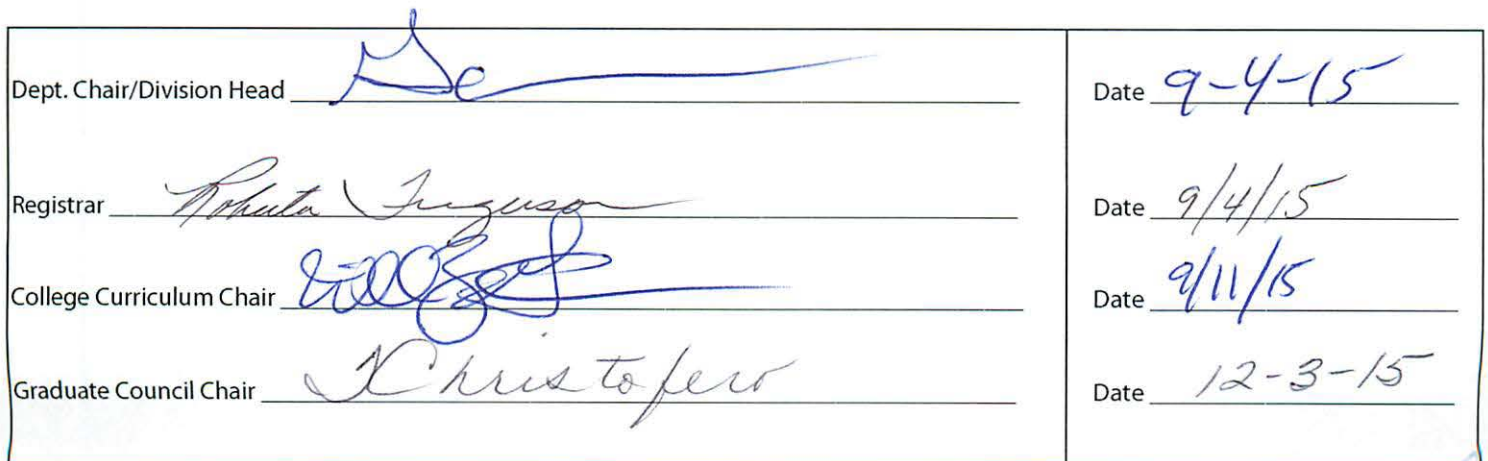 Dept. Chair/Division Head Date 9-4-15
Registrar Roberta Ferguson Date 9/4/15
College Curriculum Chair Date 9/11/15
Graduate Council Chair TChristofero Date 12-3-15